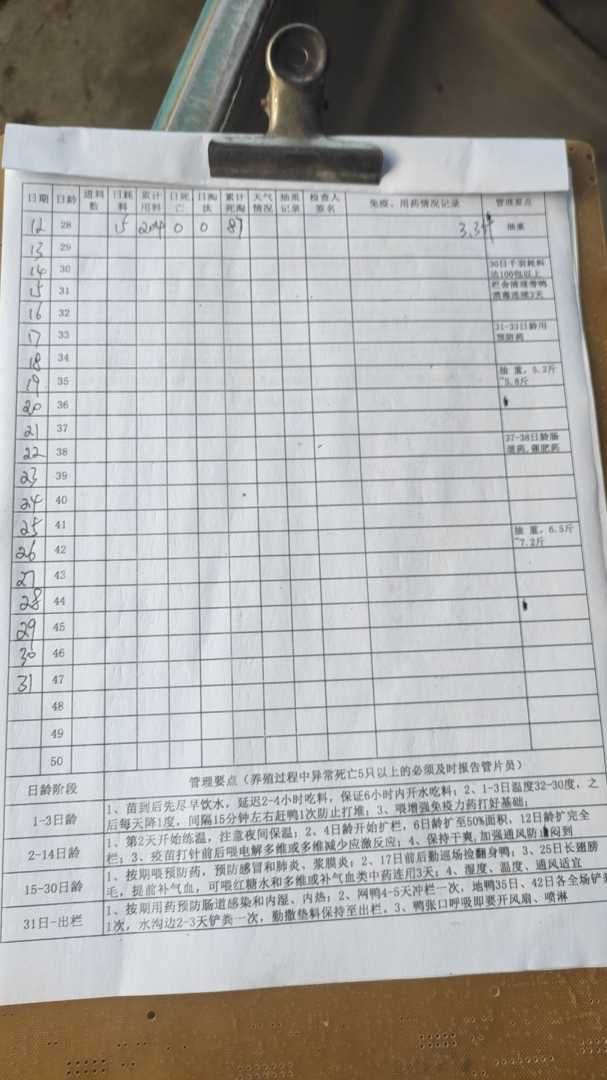 日期 日龄 进料数 日耗料 累计用料 日死亡 日淘汰 累计死淘 天气情况 抽重记录 检查人签名 免疫、用药情况记录 管理要点
12 28 15 204 0 0 87 3.3斤 抽重
13 29
14 30 30日千羽耗料达100包以上
15 31 栏舍清理带鸭消毒连续3天
16 32
17 33 31-33日龄用预防药
18 34
19 35 抽重，5.2斤~5.8斤
20 36
21 37
22 38 37-38日龄肠道药，催肥药
23 39
24 40
25 41 抽重，6.5斤~7.2斤
26 42
27 43
28 44
29 45
30 46
31 47
48
49
50
日龄阶段 管理要点（养殖过程中异常死亡5只以上的必须及时报告管片员）
1-3日龄 1、苗到后先尽早饮水，延迟2-4小时吃料，保证6小时内开水吃料；2、1-3日温度32-30度，之
后每天降1度，间隔15分钟左右赶鸭1次防止打堆；3、喂增强免疫力药打好基础；
2-14日龄 1、第2天开始练温，注意夜间保温；2、4日龄开始扩栏，6日龄扩至50%面积，12日龄扩完全
栏；3、疫苗打针前后喂电解多维或多维减少应激反应；4、保持干爽，加强通风防闷到
15-30日龄 1、按期喂预防药，预防感冒和肺炎、浆膜炎；2、17日前后勤巡场捡翻身鸭；3、25日长翅膀
毛，提前补气血，可喂红糖水和多维或补气血类中药连用3天；4、湿度、温度、通风适宜
31日-出栏 1、按期用药预防肠道感染和内湿、内热；2、网鸭4-5天冲栏一次，地鸭35日、42日各全场铲粪
1次，水沟边2-3天铲粪一次，勤撒垫料保持至出栏。3、鸭张口呼吸即要开风扇、喷淋